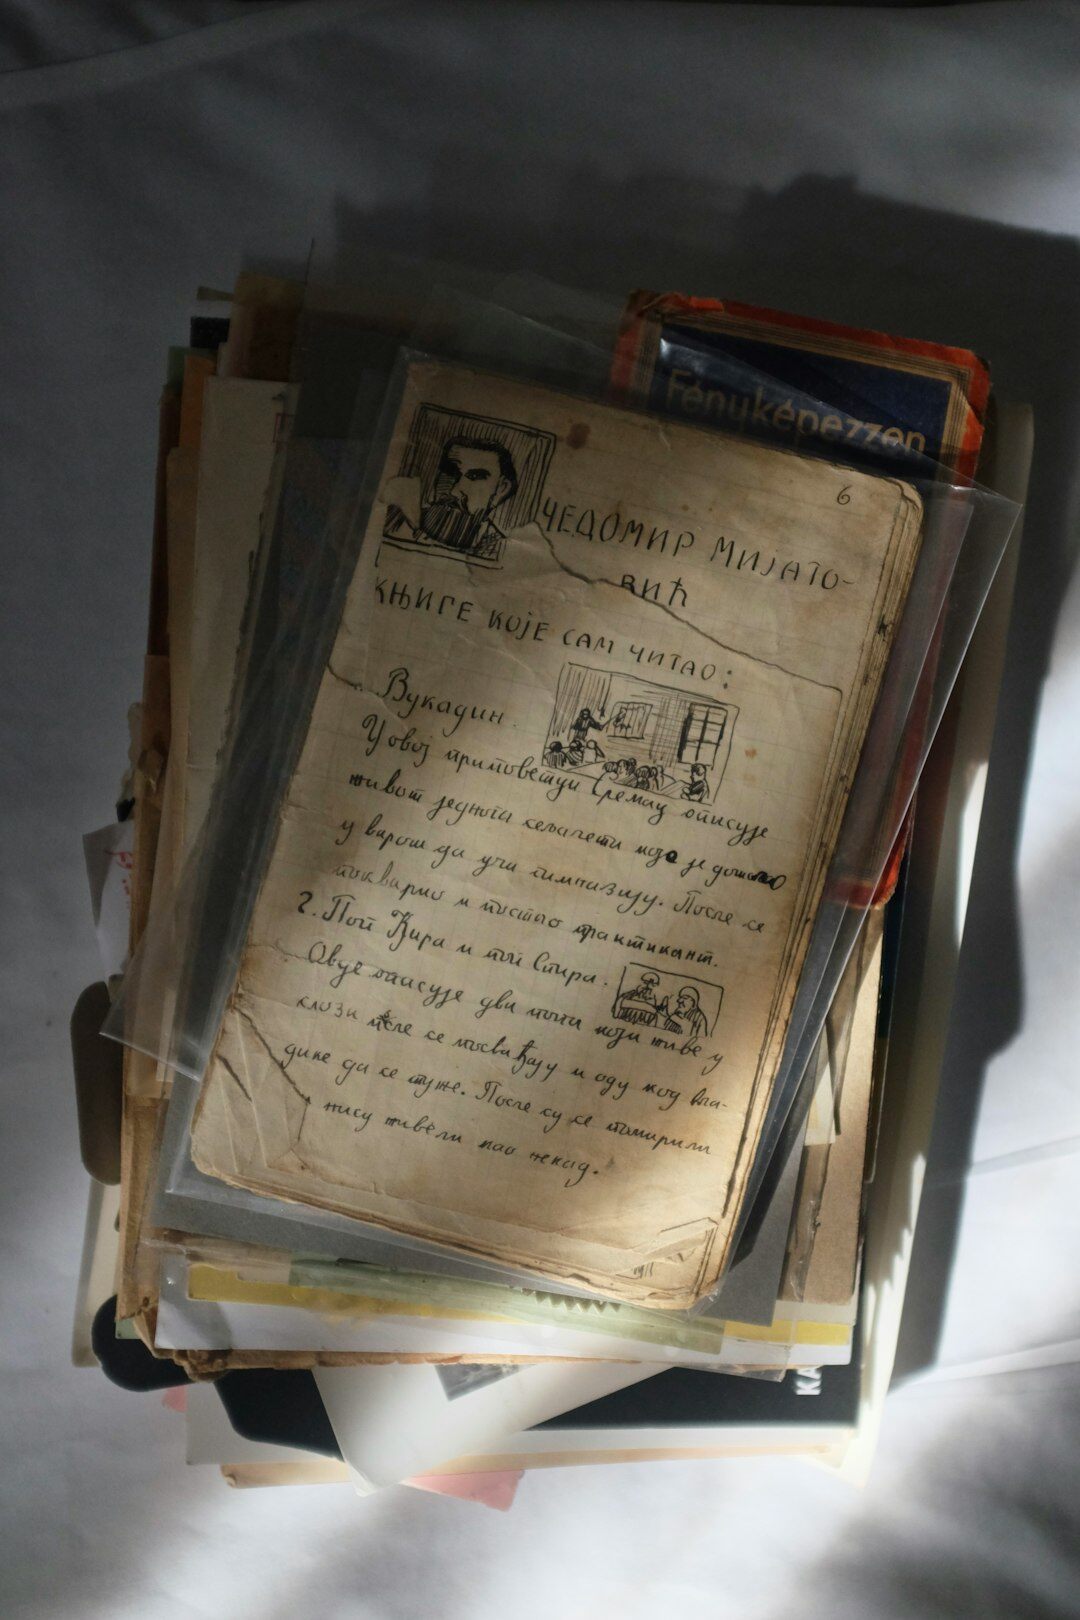 Fényképezzen
6
ЧЕДОМИР МИЈАТО-
ВИЋ
КЊИГЕ КОЈЕ САМ ЧИТАО:
Вукадин.
У овој приповетци Сремац описује
живот једнога сељачета која је дошло
у варош да учи гимназију. После се
покварио и постао практикант.
2. Поп Ћира и поп Спира.
Овде описује два попа који живе у
слози после се посвађају и оду код вла-
дике да се туже. После су се помирили
нису живели као некад.
КА